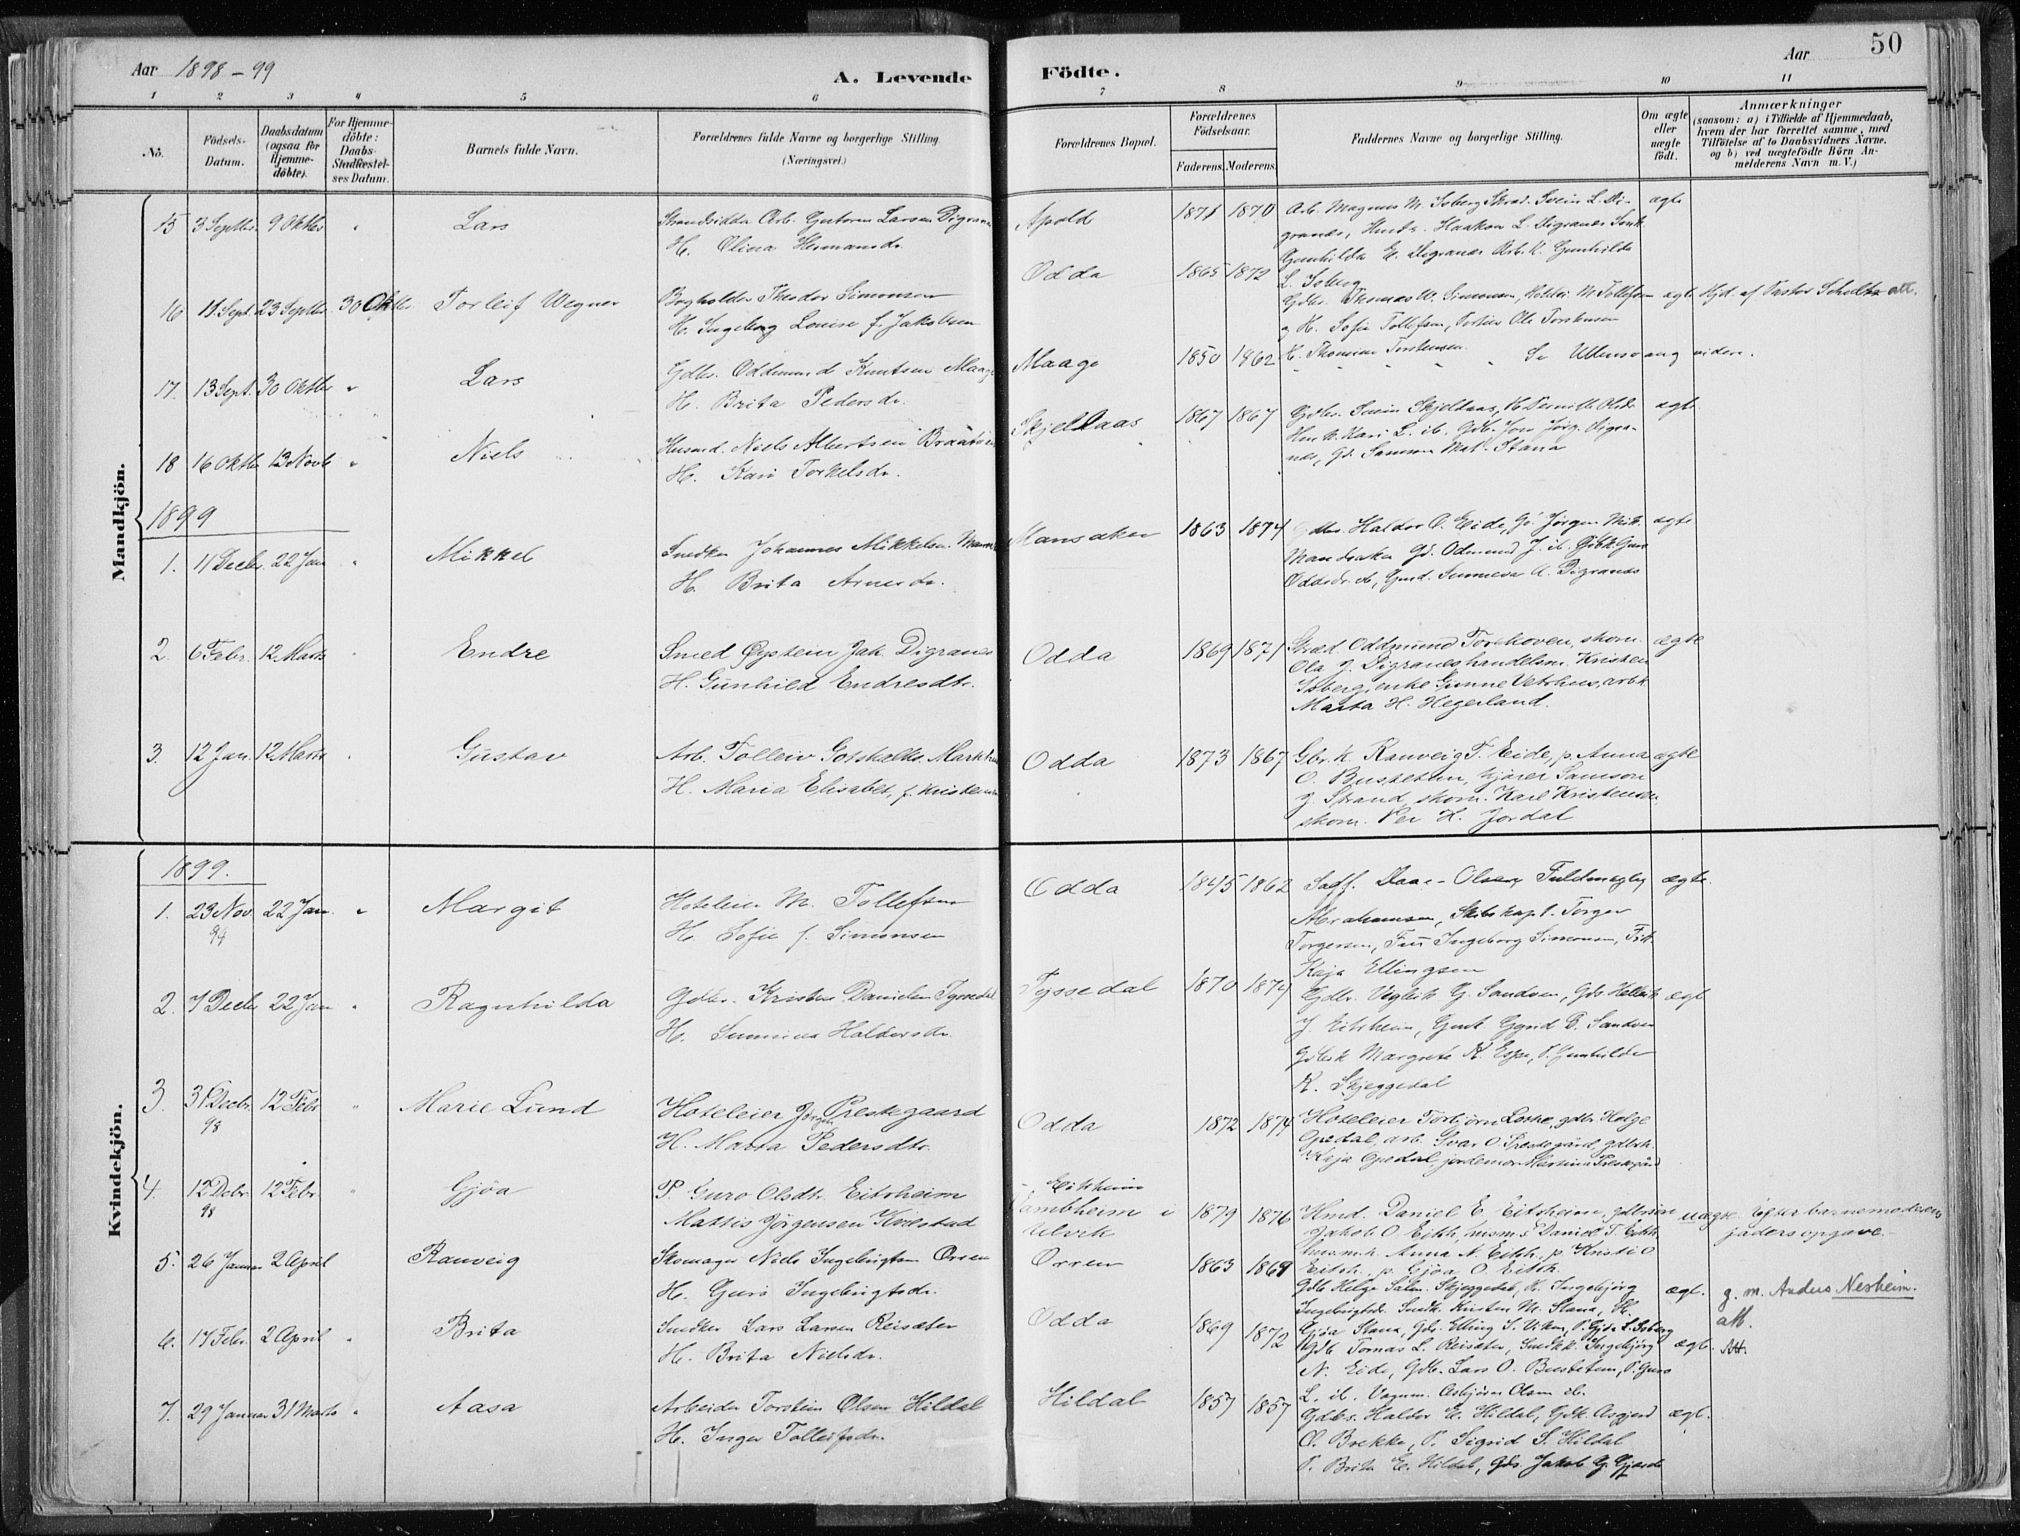 Aar 1898-99
A. Levende Födte.
Aar
50
1 2 3 4 5 6 7 8 9 10 11
No.
Födsels-Datum.
Daabsdatum (ogsaa for Hjemme-döbte).
For Hjemme-döbte: Daabs-Stadfæstel-ses Datum.
Barnets fulde Navn.
Forældrenes fulde Navne og borgerlige Stilling.
(Næringsvei.)
Forældrenes Bopæl.
Forældrenes Födselsaar.
Faderens. Moderens.
Faddernes Navne og borgerlige Stilling.
Om ægte eller uægte födt.
Anmærkninger
(saasom: a) i Tilfælde af Hjemmedaab,
hvem der har forrettet samme, med
Tilföielse af to Daabsvidners Navne.
og b) ved uægtefödte Börn An-
melderens Navn m. V.)
Mandkjön.
15 3 Septbr. 9 Oktbr. " Lars
Strandsidder Arb. Guttorm Larsen Digranes
H. Olina Hermansdr.
Apold 1871 1870
Arb. Magnus M. Isberg Skræd. Svein L. Di-
granes, Haakon L. Digranes
Gunhilda E. Digranes Arb. K. Gunhilda
L. Isberg
ægte
16 11 Sept. 23 Septbr. 30 Oktbr. Torleif Wegner
Bogholder Theodor Simonsen
H. Ingeborg Louise f. Jakobsen
Odda 1865 1872
Gdbr. Thomas W. Simonsen, Hotelei M. Tollefsen
og H. Sofie Tollefsen, Ole Torstensen
H. Thomine Torstensen.
ægte Hjd. af Pastor Schelte att.
17. 13 Sept. 30 Oktbr " Lars
Gdbr. Oddmund Knutsen Maage
H. Brita Pedersdr.
Maage 1850 1862
" " " " Se Ullensvang videre.
18 16 Oktbr 13 Novb " Niels
Husmd. Niels Albertsen Braatøen
H. Kari Torkelsdr.
Skjeldaas 1867 1867
Gdbr. Svein Skjeldaas, K. Pernille Olsdr.
Hm. K. Kari L. ib. Gdb. Jon Jörg. Digra-
nes, Gd. Samson Mat. Stana
ægte
1899
1. 11 Decbr. 22 Jan " Mikkel
Snedker Johannes Mikkelsen
H. Brita Arnesdr.
Mansaker 1863 1874
Gdbr. Haldor O. Eide, Gd. Jørgen Mik.
Mandsaker Gd. Odmund J. ib. Gdbk Guro
Oddsdr. ib, Gmd. Sunneva A. Digranes
ægte
2. 6 Febr. 12 Marts " Endre
Smed Øystein Jak. Digranes
H. Gunhild Endresdtr.
Odda 1869 1871
Skræd. Oddmund Torehoven, skom.
Ola J. Digranes handelsm. Kristen
Isberg, enke Gunne Vetrhus, arbk.
Marta H. Hegerland.
ægte
3. 12 Jan. 12 Marts " Gustav
Arb. Tolleiv Gotskalks.
H. Maria Elisabet, f. Kristensen
Odda 1873 1867
Gbr.k Ranveig T. Eide, p. Anna
O. Bustetun, Gjører Samson
J. Strand skom. Karl Kristensen
skom. Per H. Jordal
ægte
Kvindekjön.
1899.
1. 23 Nov. 98 22 Jan " Margit
Hoteleier M. Tollefsen
H. Sofie f. Simonsen
Odda 1845 1862
Sagf. Daae-Olsen, Fuldmægtig
Abrahamsen, Skibskapt. Torger
Torgersen, Fru Ingeborg Simonsen, Frk.
Kaja Ellingsen
ægte.
2. 7 Decbr 22 Jan " Ragnhilda
Gdbr. Kristen Danielsen Tyssedal
H. Sunniva Haldorsdr.
Tyssedal 1870 1874
Gdbr. Vegleik G. Sandven, Gdr. Helleik
J. Eitrheim, Gmt. Gyrid B. Sandven
Gdbrk Margrete K. Espe, P. Gunhilde
K. Skjeggedal
ægte
3. 31 Decbr. 98 12 Febr " Marie Lund
Hoteleier Jørgen Prestegaard
H. Marta Pedersdtr.
Odda 1872 1874
Hoteleier Torbjørn Lothe, gdbr. Helge
Opedal, arb. Ivar O Prestegård, gdbrk.
Kaja Opedal jordemor Martina Prestegård
4. 12 Debr. 98 12 Febr. " Gjøa
P. Guro Olsdtr. Eitrheim
Mattis Jørgensen Kvestad
Eitrheim
Cambheim i
Ulvik
1879 1876
Hmd. Daniel E. Eitrheim, gdbrsøn
Jakob O. Eitrh, husm.s Daniel T. Eitrh
husm.k Anna N. Eitrh., p. Kristi O
Eitrh., p. Gjøa O. Eitrh.
uægte Efter barnemoderens
faders opgave.
5. 26 Januar 2 April " Ranveig
Skomager Niels Ingebrigtsen Orren
H. Guro Ingebrigtsdr.
Orren 1863 1869
Gdb. Helge Sam. Skjeggedal, K. Ingebjørg
Ingebrigtsd. Snedk. Kristen M. Stana, H.
Gjøa Stana, Gdr. Elling S. Viken, P. Gjøa L. Isberg
ægt. g. m. Anders Nesheim.
att.
6. 17 Febr. 2 April " Brita
Snedker Lars Larsen Reisæter
H. Brita Nielsdr.
Odda 1869 1872
Gdb. Tomas L. Reisæter, Snedkk. Ingebjørg
N. Eide, Gdb. Lars O. Bustetun, P. Guro
L. ib. Asbjørn Olsen ib.
ægt. Att.
7. 29 Januar 31 Marts " Aasa
Arbeider Torstein Olsen Hildal
H. Inger Tolleifsdr.
Hildal 1857 1857
Gdbr. Haldor E. Hildal, Gdk. Asgjerd
O. Brekke, P. Sigrid S. Hildal
P. Brita E. Hildal, Gdr. Jakob G. Gjerde
ægt.